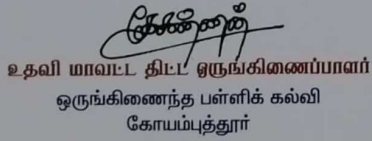 உதவி மாவட்ட திட்ட ஒருங்கிணைப்பாளர்
ஒருங்கிணைந்த பள்ளிக் கல்வி
கோயம்புத்தூர்